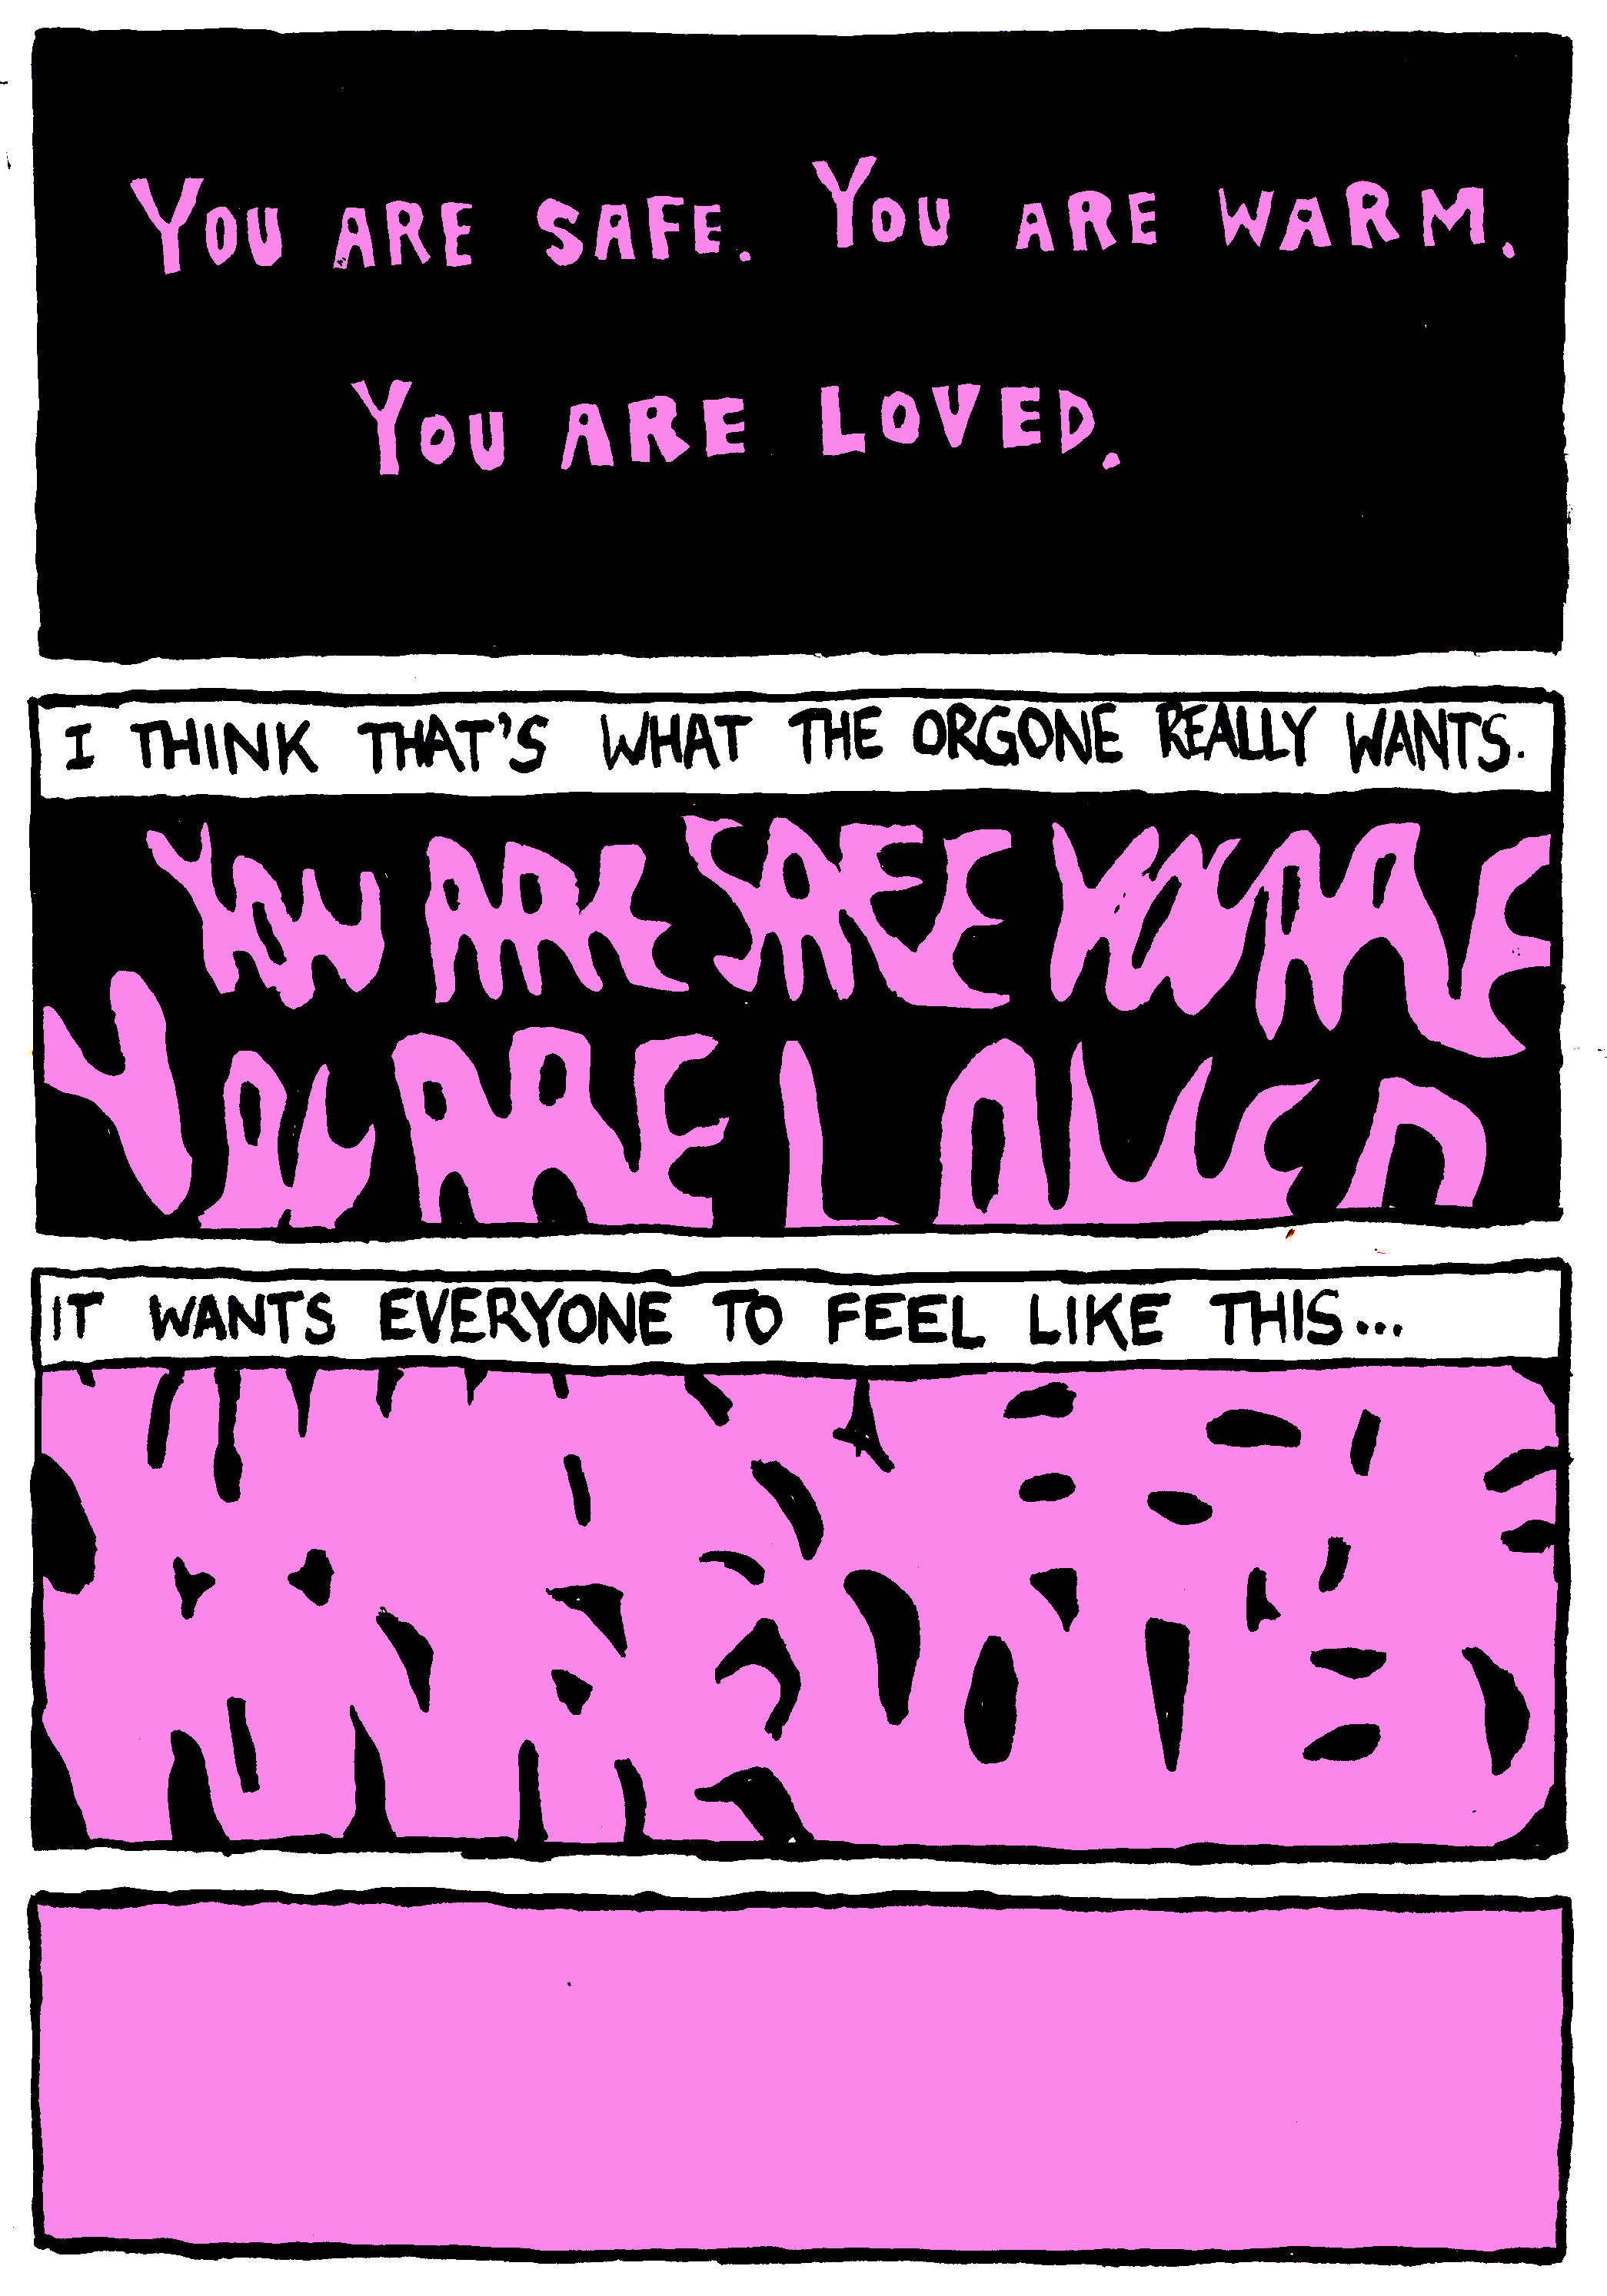 YOU ARE SAFE. YOU ARE WARM.
YOU ARE LOVED.
I THINK THAT'S WHAT THE ORGONE REALLY WANTS.
YOU ARE SAFE YOU ARE
YOU ARE LOVED
IT WANTS EVERYONE TO FEEL LIKE THIS...